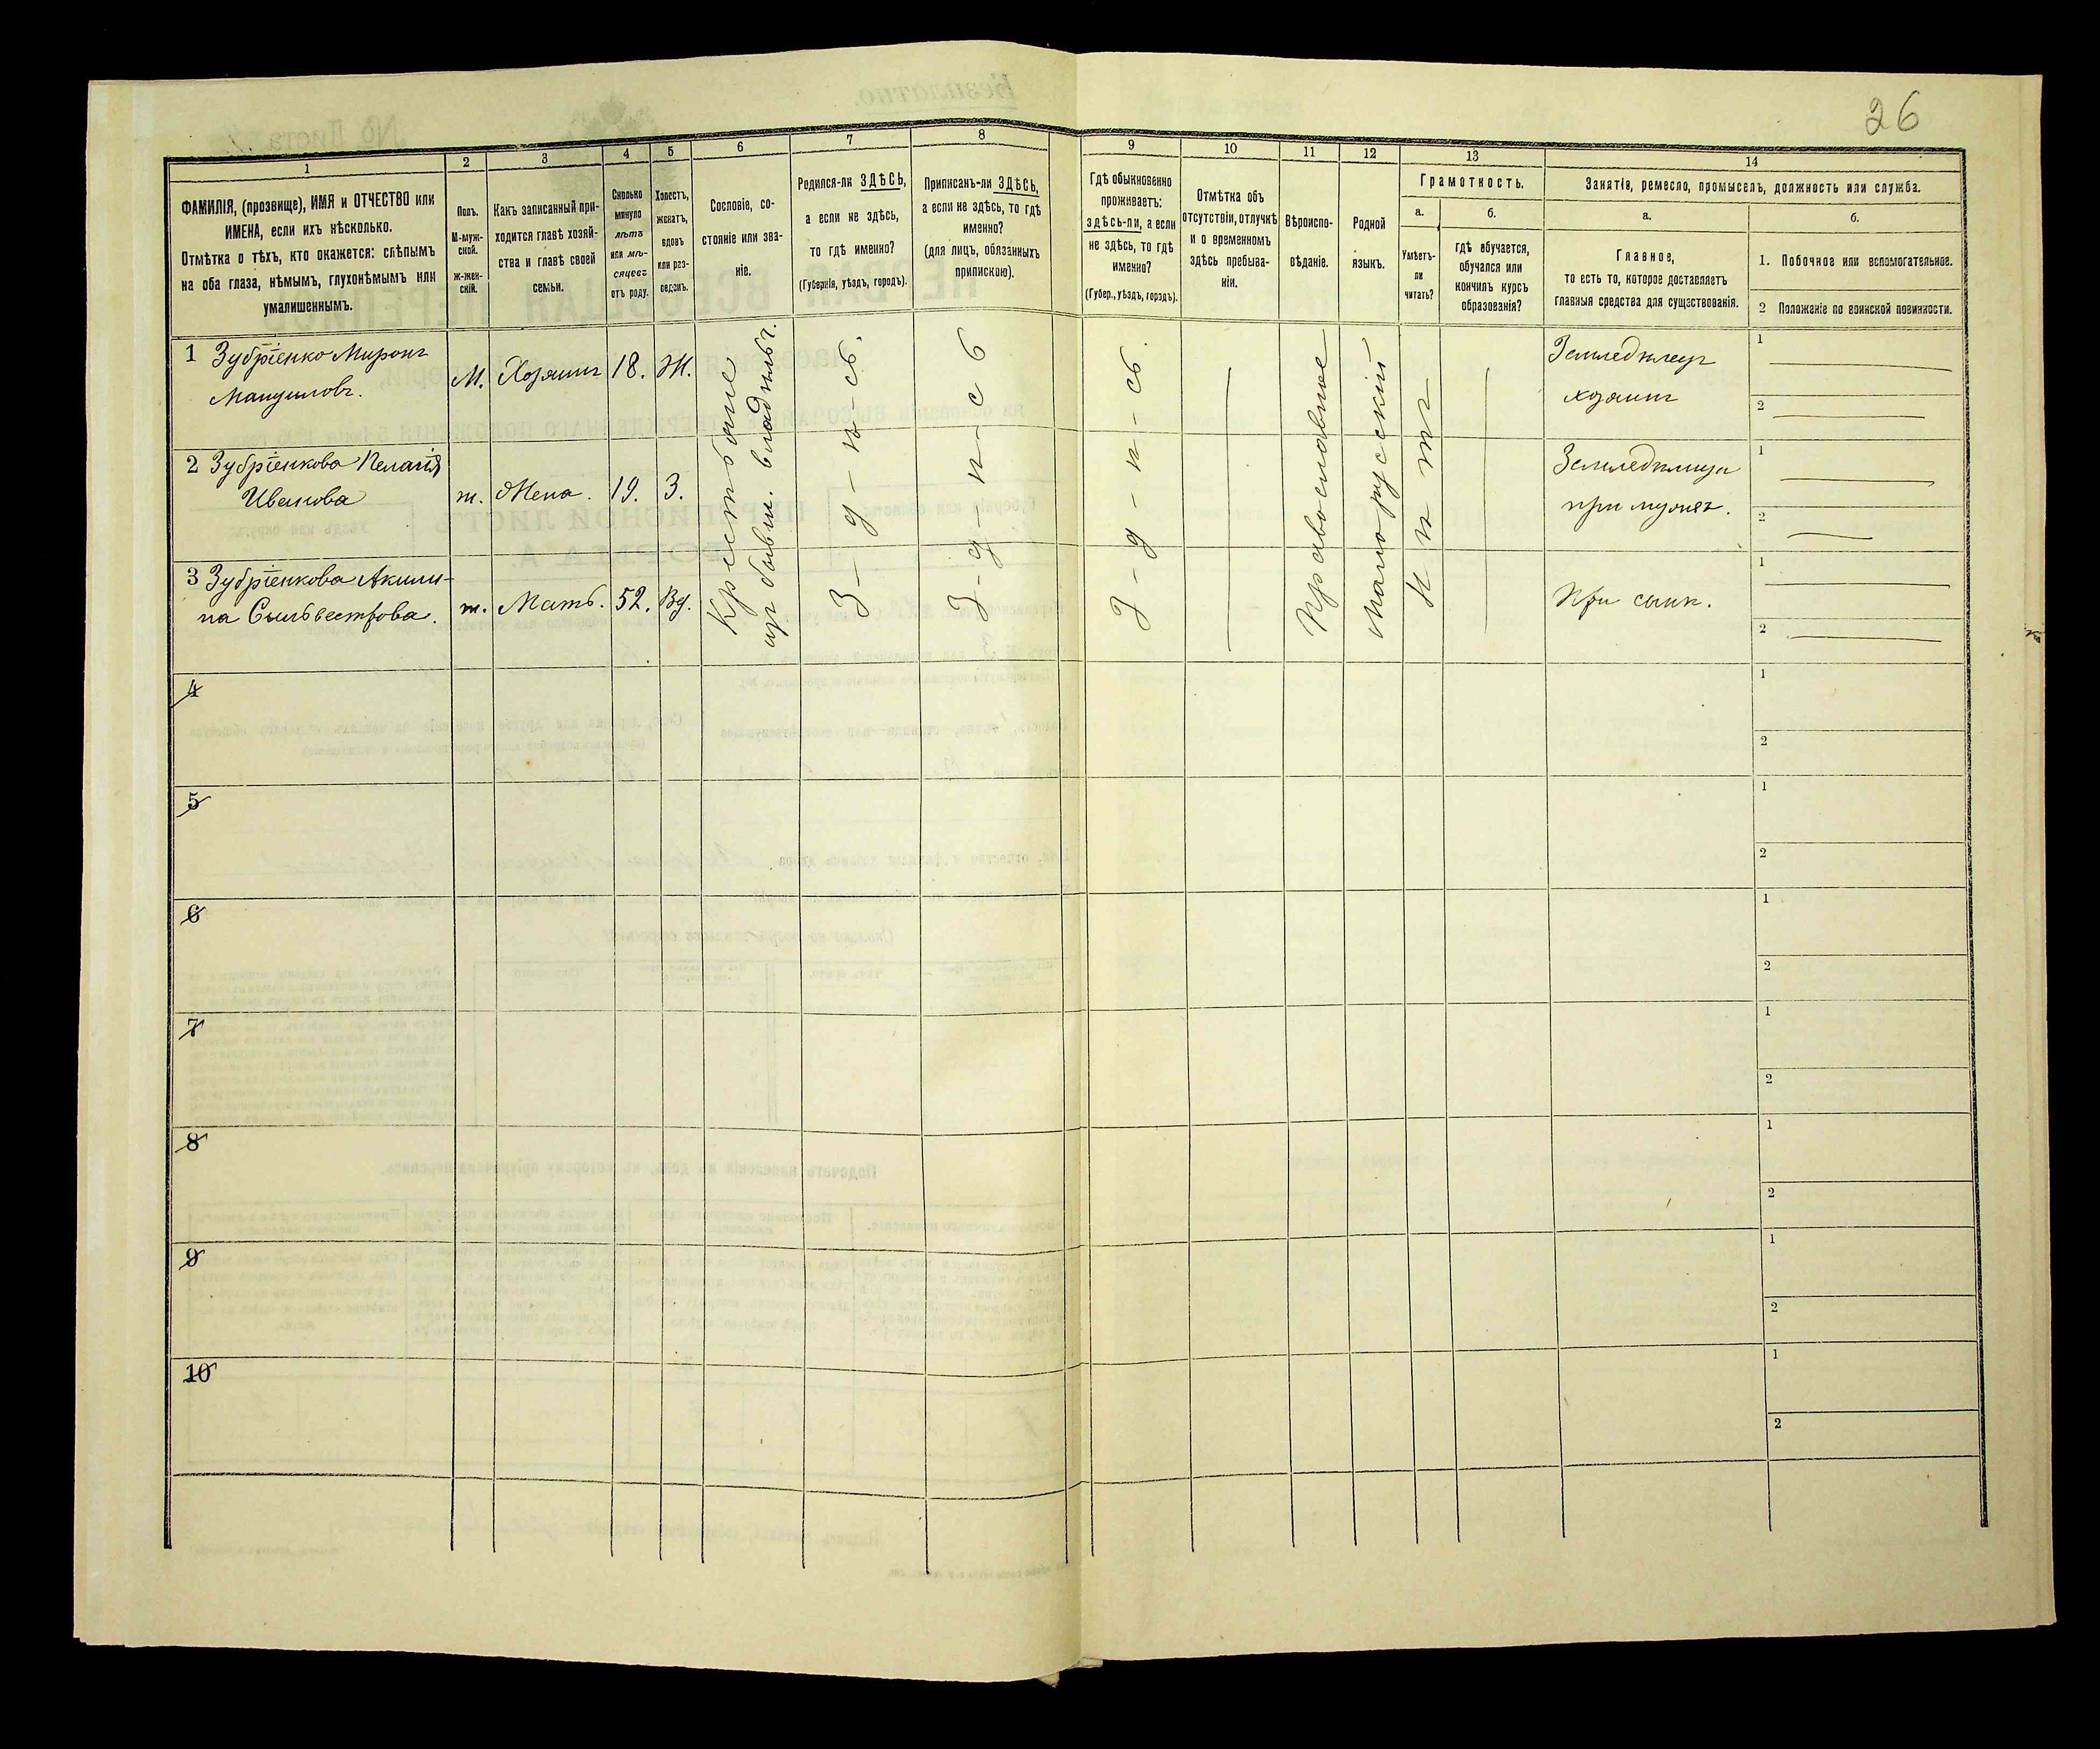 26
1
2
3
4
5
6
7
8
9
10
11
12
13
14
ФАМИЛІЯ, (прозвище), ИМЯ и ОТЧЕСТВО или
ИМЕНА, если ихъ нѣсколько.
Отмѣтка о тѣхъ, кто окажется: слѣпымъ
на оба глаза, нѣмымъ, глухонѣмымъ или
умалишеннымъ.
Полъ.
М-муж-
ской.
ж-жен-
скій.
Какъ записанный при-
ходится главѣ хозяй-
ства и главѣ своей
семьи.
Сколько
минуло
лѣтъ
или мѣ-
сяцевъ
отъ роду.
Холостъ,
женатъ,
вдовъ
или раз-
веденъ.
Сословіе, со-
стояніе или зва-
ніе.
Родился-ли ЗДѢСЬ,
а если не здѣсь,
то гдѣ именно?
(Губернія, уѣздъ, городъ).
Приписанъ-ли ЗДѢСЬ,
а если не здѣсь, то гдѣ
именно?
(для лицъ, обязанныхъ
припискою).
Гдѣ обыкновенно
проживаетъ:
здѣсь-ли, а если
не здѣсь, то гдѣ
именно?
(Губер., уѣздъ, городъ).
Отмѣтка объ
отсутствіи, отлучкѣ
и о временномъ
здѣсь пребыва-
ніи.
Вѣроиспо-
вѣданіе.
Родной
языкъ.
Грамотность.
а.
Умѣетъ-
ли
читать?
б.
гдѣ обучается,
обучался или
кончилъ курсъ
образованія?
Занятіе, ремесло, промыселъ, должность или служба.
а.
Главное,
то есть то, которое доставляетъ
главныя средства для существованія.
б.
1. Побочное или вспомогательное.
2 Положеніе по воинской повинности.
1 Зубріенко Миронъ
Мануиловъ.
М.
Хозяинъ
18.
Ж.
Крестьяне
изъ бывш. владѣльч.
З-д-ѣ-сь.
З-д-ѣ-с ь
З-д-ѣ-сь.
Православное
Малорусскій
Н ѣ т ъ
Земледѣлецъ
хозяинъ
1
2
2 Зубріенкова Пелагія
Иванова
ж.
Жена.
19.
З.
Земледѣлица
при мужѣ.
1
2
3 Зубріенкова Акили-
на Сильвестрова.
ж.
Мать.
52.
Вд.
При сынѣ.
1
2
4
1
2
5
1
2
6
1
2
7
1
2
8
1
2
9
1
2
10
1
2